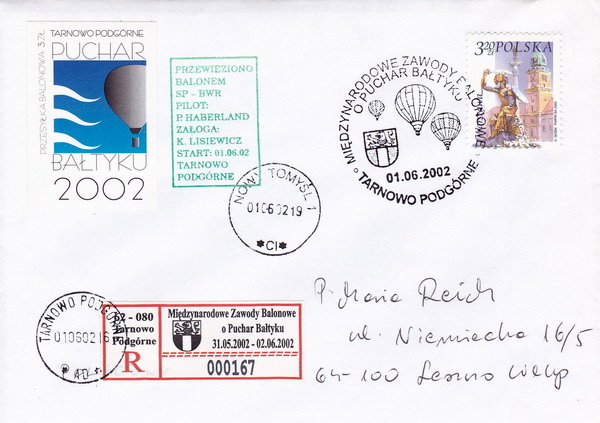 TARNOWO PODGÓRNE
PUCHAR
PRZESYŁKA BALONOWA 3 ZŁ
BAŁTYKU
2002
PRZEWIEZIONO
BALONEM
SP - BWR
PILOT:
P. HABERLAND
ZAŁOGA:
K. LISIEWICZ
START: 01.06.02
TARNOWO
PODGÓRNE
MIĘDZYNARODOWE ZAWODY BALONOWE
O PUCHAR BAŁTYKU
01.06.2002
TARNOWO PODGÓRNE
3,20 ZŁ POLSKA
NOWY TOMYŚL 1
01060219
CI
TARNOWO PODGÓRN
01060216
62 - 080
Tarnowo
Podgórne
R
Międzynarodowe Zawody Balonowe
o Puchar Bałtyku
31.05.2002 - 02.06.2002
000167
P. Maria Reich
ul. Niemiecka 16/5
64-100 Leszno Wlkp